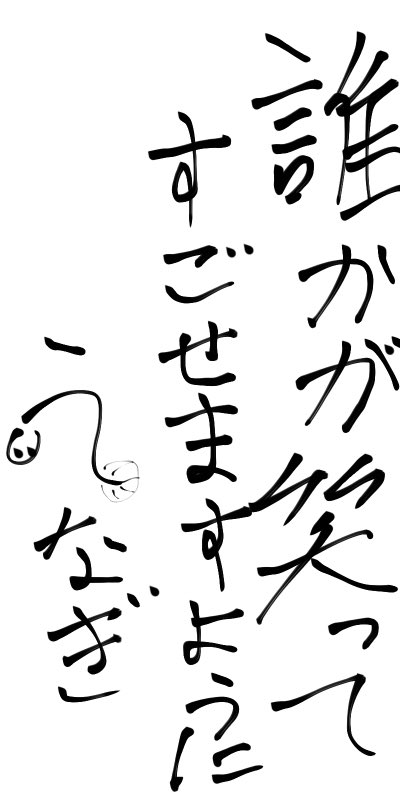 誰かが笑って
すごせますように
うさなぎ